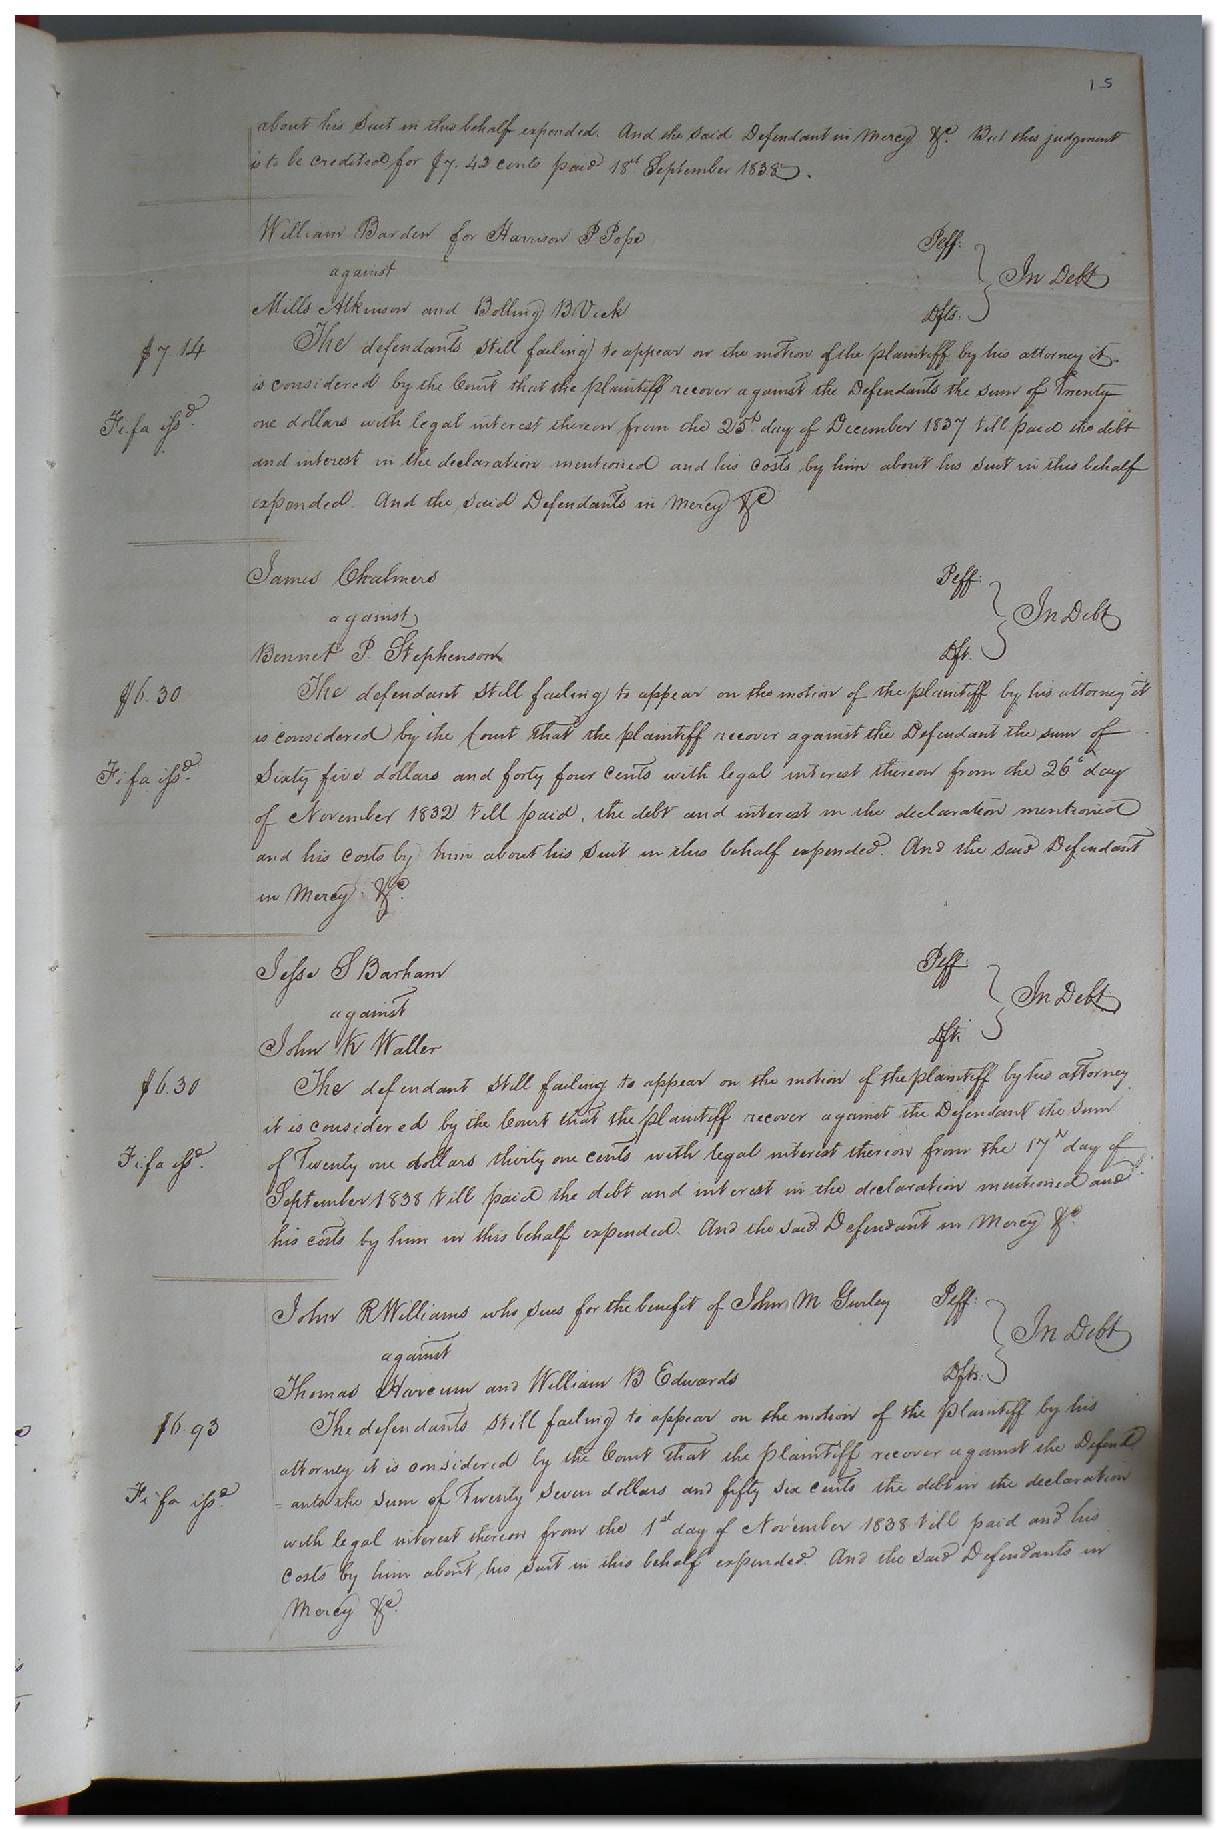 15
about his suit in this behalf expended. And the said Defendant in Mercy &c. But this judgment
is to be credited for $7.42 cents paid 18th September 1838.
William Barden for Harrison P Pope Plff:
against In Debt
Mills Atkinson and Bolling B Vick Dfts.
$7 14 The defendants still failing to appear on the motion of the plaintiff by his attorney it
is considered by the Court that the plaintiff recover against the Defendants the sum of Twenty
Fi. fa issd. one dollars with legal interest thereon from the 25th day of December 1837 till paid the debt
and interest in the declaration mentioned and his costs by him about his suit in this behalf
expended. And the said Defendants in Mercy &c
James Chalmers Plff:
against In Debt
Bennet P. Stephenson Dft.
$6.30 The defendant still failing to appear on the motion of the plaintiff by his attorney it
is considered by the Court that the plaintiff recover against the Defendant the sum of
Fi fa issd. Sixty five dollars and forty four cents with legal interest thereon from the 26th day
of November 1832 till paid, the debt and interest in the declaration mentioned
and his costs by him about his suit in this behalf expended. And the said Defendant
in Mercy &c.
Jesse S Barham Plff:
against In Debt
John K Waller Dft:
$6.30 The defendant still failing to appear on the motion of the plaintiff by his attorney
it is considered by the Court that the plaintiff recover against the Defendant the sum
Fi fa issd. of Twenty one dollars thirty one cents with legal interest thereon from the 17th day of
September 1838 till paid the debt and interest in the declaration mentioned and
his costs by him in this behalf expended. And the said Defendant in Mercy &c.
John R Williams who sues for the benefit of John M Gurley Plff:
against In Debt
Thomas Harcum and William B Edwards Dfts.
$6.93 The defendants still failing to appear on the motion of the plaintiff by his
attorney it is considered by the Court that the plaintiff recover against the Defend
Fi fa issd. =ants the sum of Twenty seven dollars and fifty six cents the debt in the declaration
with legal interest thereon from the 1st day of November 1838 till paid and his
costs by him about his suit in this behalf expended. And the said Defendants in
Mercy &c.